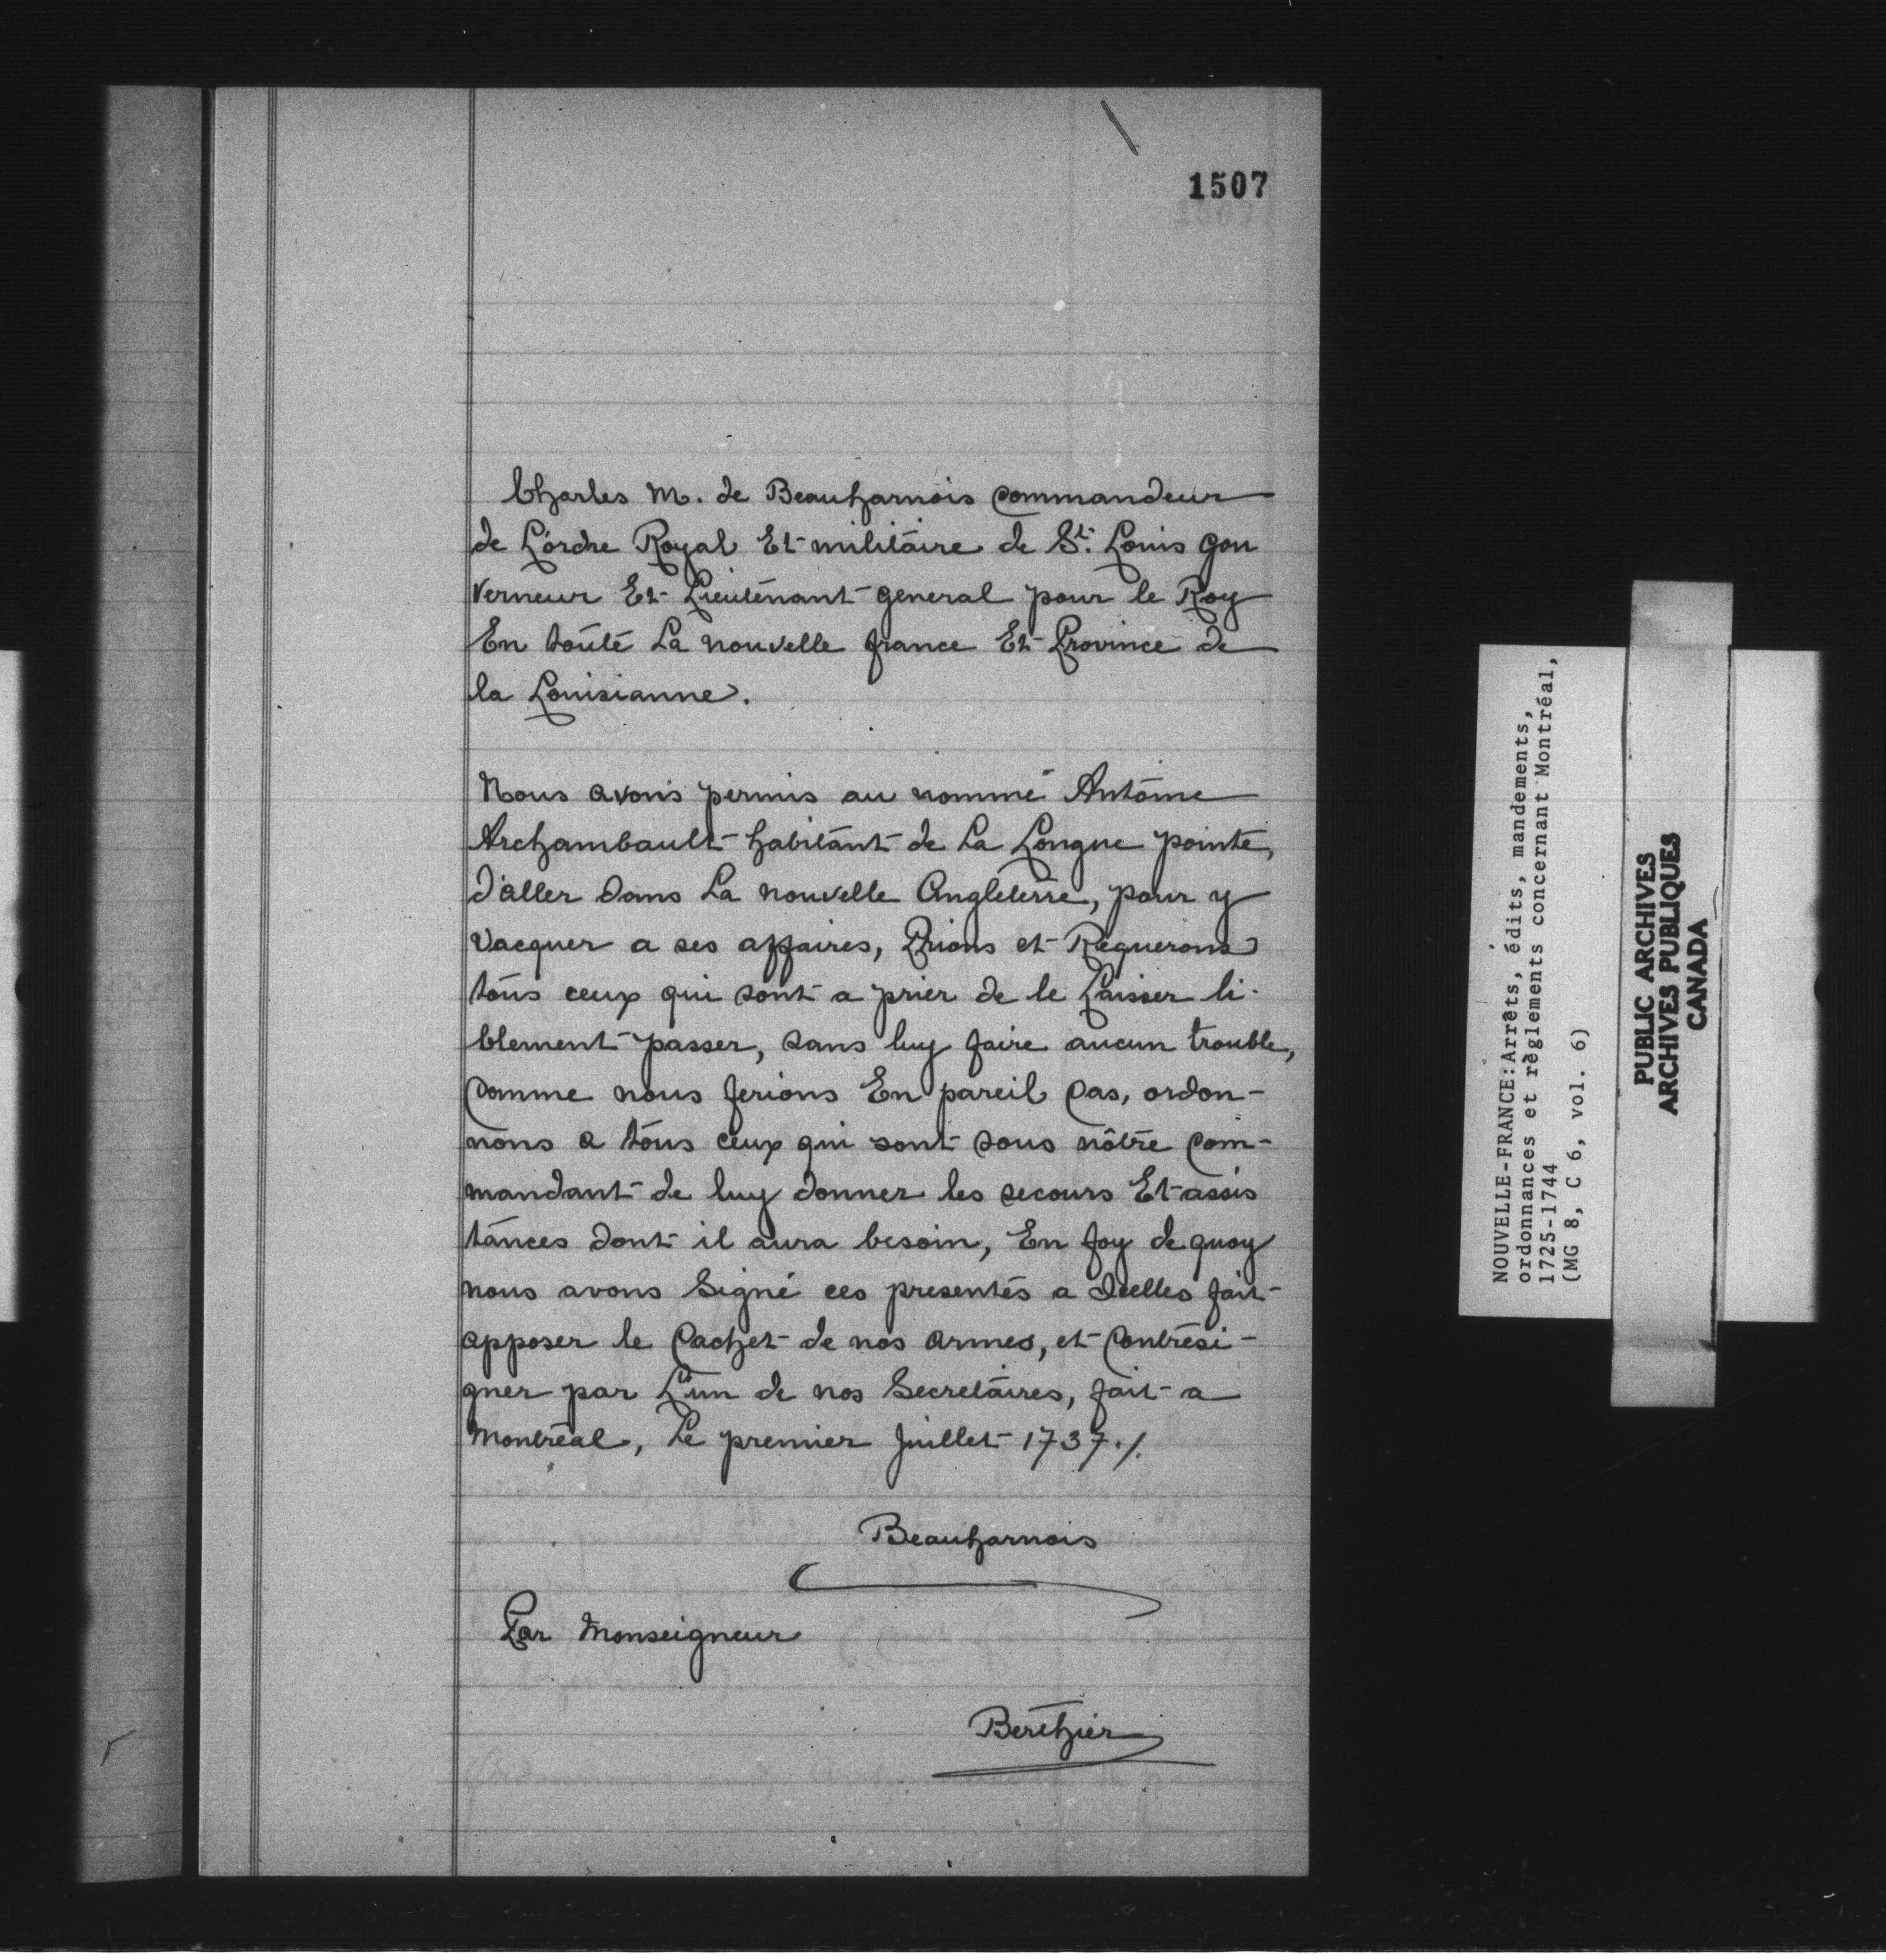 1507
Charles M. de Beauharnois Commandeur
de L'ordre Royal Et militaire de St. Louis gou
verneur Et Lieutenant general pour le Roy
En toute La nouvelle france Et Province de
la Louisianne.
Nous avons permis au nommé Antoine
Archambault habitant de La Longue pointe,
d'aller dans La nouvelle Angleterre, pour y
Vacquer a ses affaires, Prions et Requerons
tous ceux qui sont a prier de le Laisser li-
blement passer, sans luy faire aucun trouble,
Comme nous ferions En pareil Cas, ordon-
nons a tous ceux qui sont sous nôtre Com-
mandant de luy donner les secours Et assis
tances dont il aura besoin, En foy de quoy
nous avons Signé ces presentes a Icelles fait
apposer le Cachet de nos armes, et Contresi-
gner par L'un de nos Secretaires, fait a
Montreal, Le premier Juillet 1737./.
Beauharnois
Par Monseigneur
Berthier
NOUVELLE-FRANCE: Arrêts, édits, mandements,
ordonnances et règlements concernant Montréal,
1725-1744
(MG 8, C 6, vol. 6)
PUBLIC ARCHIVES
ARCHIVES PUBLIQUES
CANADA